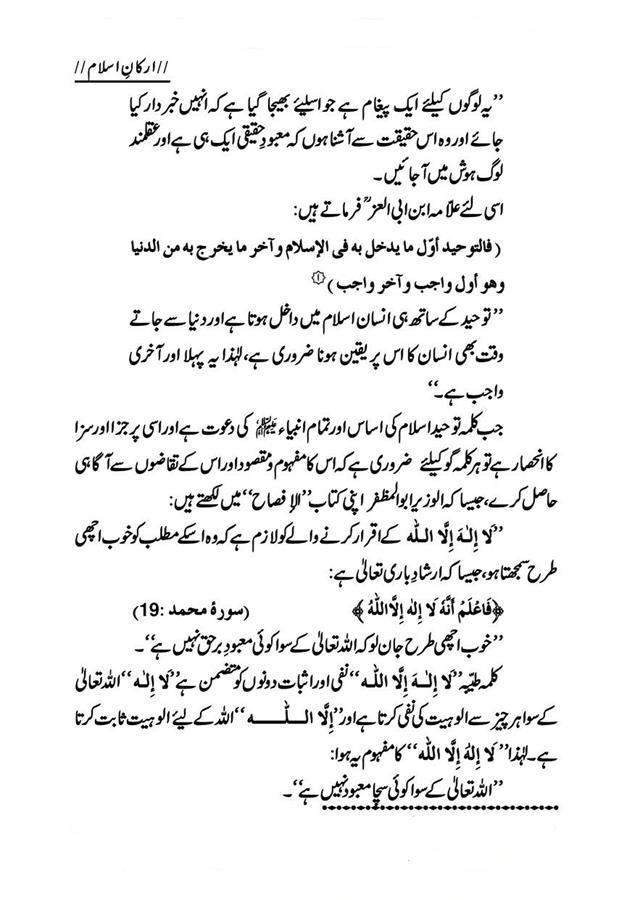 //ارکانِ اسلام//
’’یہ لوگوں کیلئے ایک پیغام ہے جو اسلیئے بھیجا گیا ہے کہ انہیں خبردار کیا
جائے اور وہ اس حقیقت سے آشنا ہوں کہ معبودِ حقیقی ایک ہی ہے اور عقلمند
لوگ ہوش میں آ جائیں۔
اسی لئے علاّمہ ابن ابی العزؒ فرماتے ہیں:
( فالتوحيد أوّل ما يدخل به فى الإسلام و آخر ما يخرج به من الدنيا
وهو أول واجب و آخر واجب )①
’’توحید کے ساتھ ہی انسان اسلام میں داخل ہوتا ہے اور دنیا سے جاتے
وقت بھی انسان کا اس پر یقین ہونا ضروری ہے، لہٰذا یہ پہلا اور آخری
واجب ہے۔‘‘
جب کلمہ توحید اسلام کی اساس اور تمام انبیاء علیہم السلام کی دعوت ہے اور اسی پر جزا اور سزا
کا انحصار ہے تو ہر کلمہ گو کیلئے ضروری ہے کہ اس کا مفہوم و مقصود اور اس کے تقاضوں سے آگاہی
حاصل کرے، جیسا کہ الوزیر ابوالمظفر اپنی کتاب ’’الإفصاح‘‘ میں لکھتے ہیں:
’’لَا إِلٰهَ إِلَّا اللّٰه کے اقرار کرنے والے کو لازم ہے کہ وہ اسکے مطلب کو خوب اچھی
طرح سمجھتا ہو، جیسا کہ ارشادِ باری تعالیٰ ہے:
﴿فَاعْلَمْ أَنَّهُ لَا إِلٰهَ إِلَّا اللّٰهُ ﴾ (سورۂ محمد :19)
’’خوب اچھی طرح جان لو کہ اللہ تعالیٰ کے سوا کوئی معبودِ برحق نہیں ہے‘‘۔
کلمہ طیّبہ ’’لَا إِلٰهَ إِلَّا اللّٰه‘‘ نفی اور اثبات دونوں کو متضمن ہے ’’لَا إِلٰه‘‘ اللہ تعالیٰ
کے سوا ہر چیز سے الوہیت کی نفی کرتا ہے اور ’’إِلَّا اللّٰه‘‘ اللہ کے لیئے الوہیت ثابت کرتا
ہے۔ لہٰذا ’’لَا إِلٰهَ إِلَّا اللّٰه‘‘ کا مفہوم یہ ہوا:
’’اللہ تعالیٰ کے سوا کوئی سچا معبود نہیں ہے‘‘۔